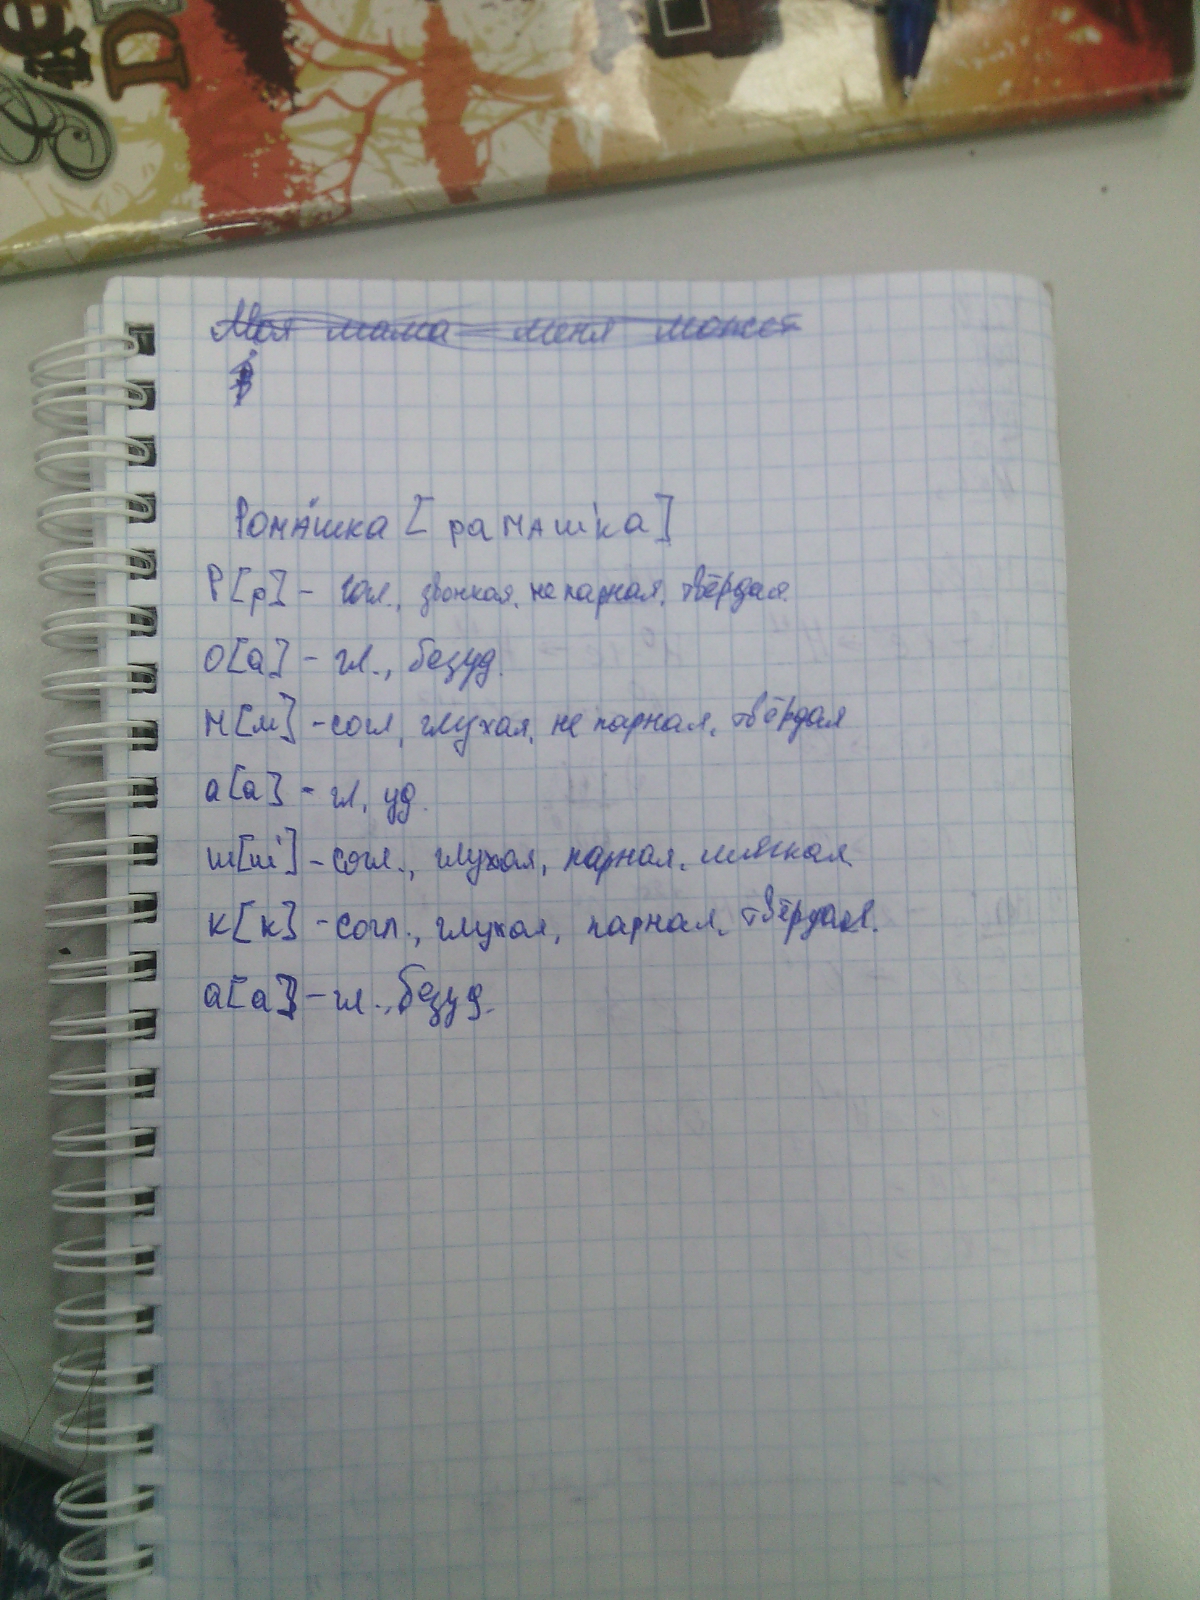 Моя мама меня может
Ромáшка [рамашʼка]
Р[р] – согл., звонкая, не парная, твёрдая.
о[а] – гл., безуд.
м[м] – согл, глухая, не парная, твёрдая
а[а] – гл, уд.
ш[шʼ] – согл., глухая, парная, мягкая
к[к] – согл., глухая, парная, твёрдая.
а[а] – гл., безуд.